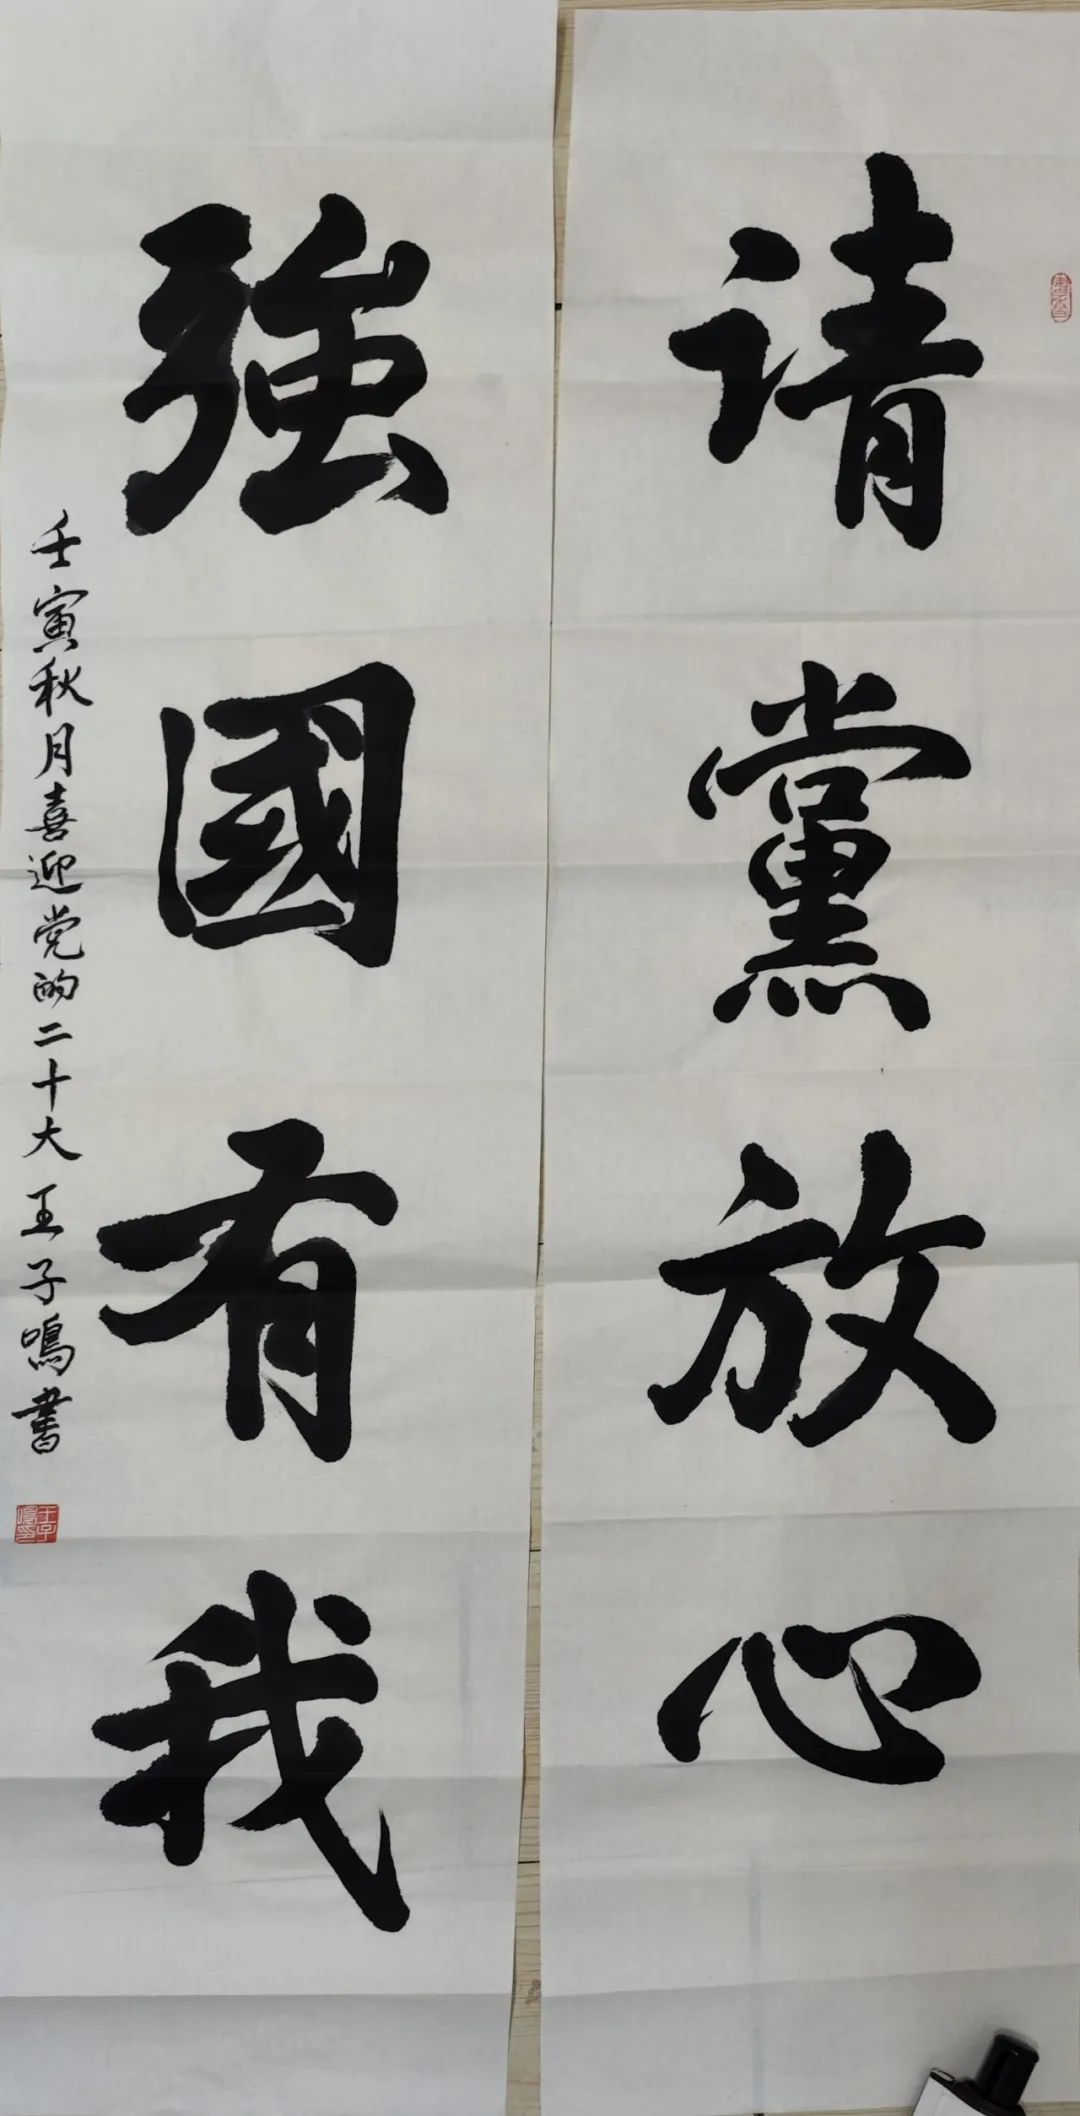 请黨放心
強國有我
壬寅秋月喜迎党的二十大 王子鳴書